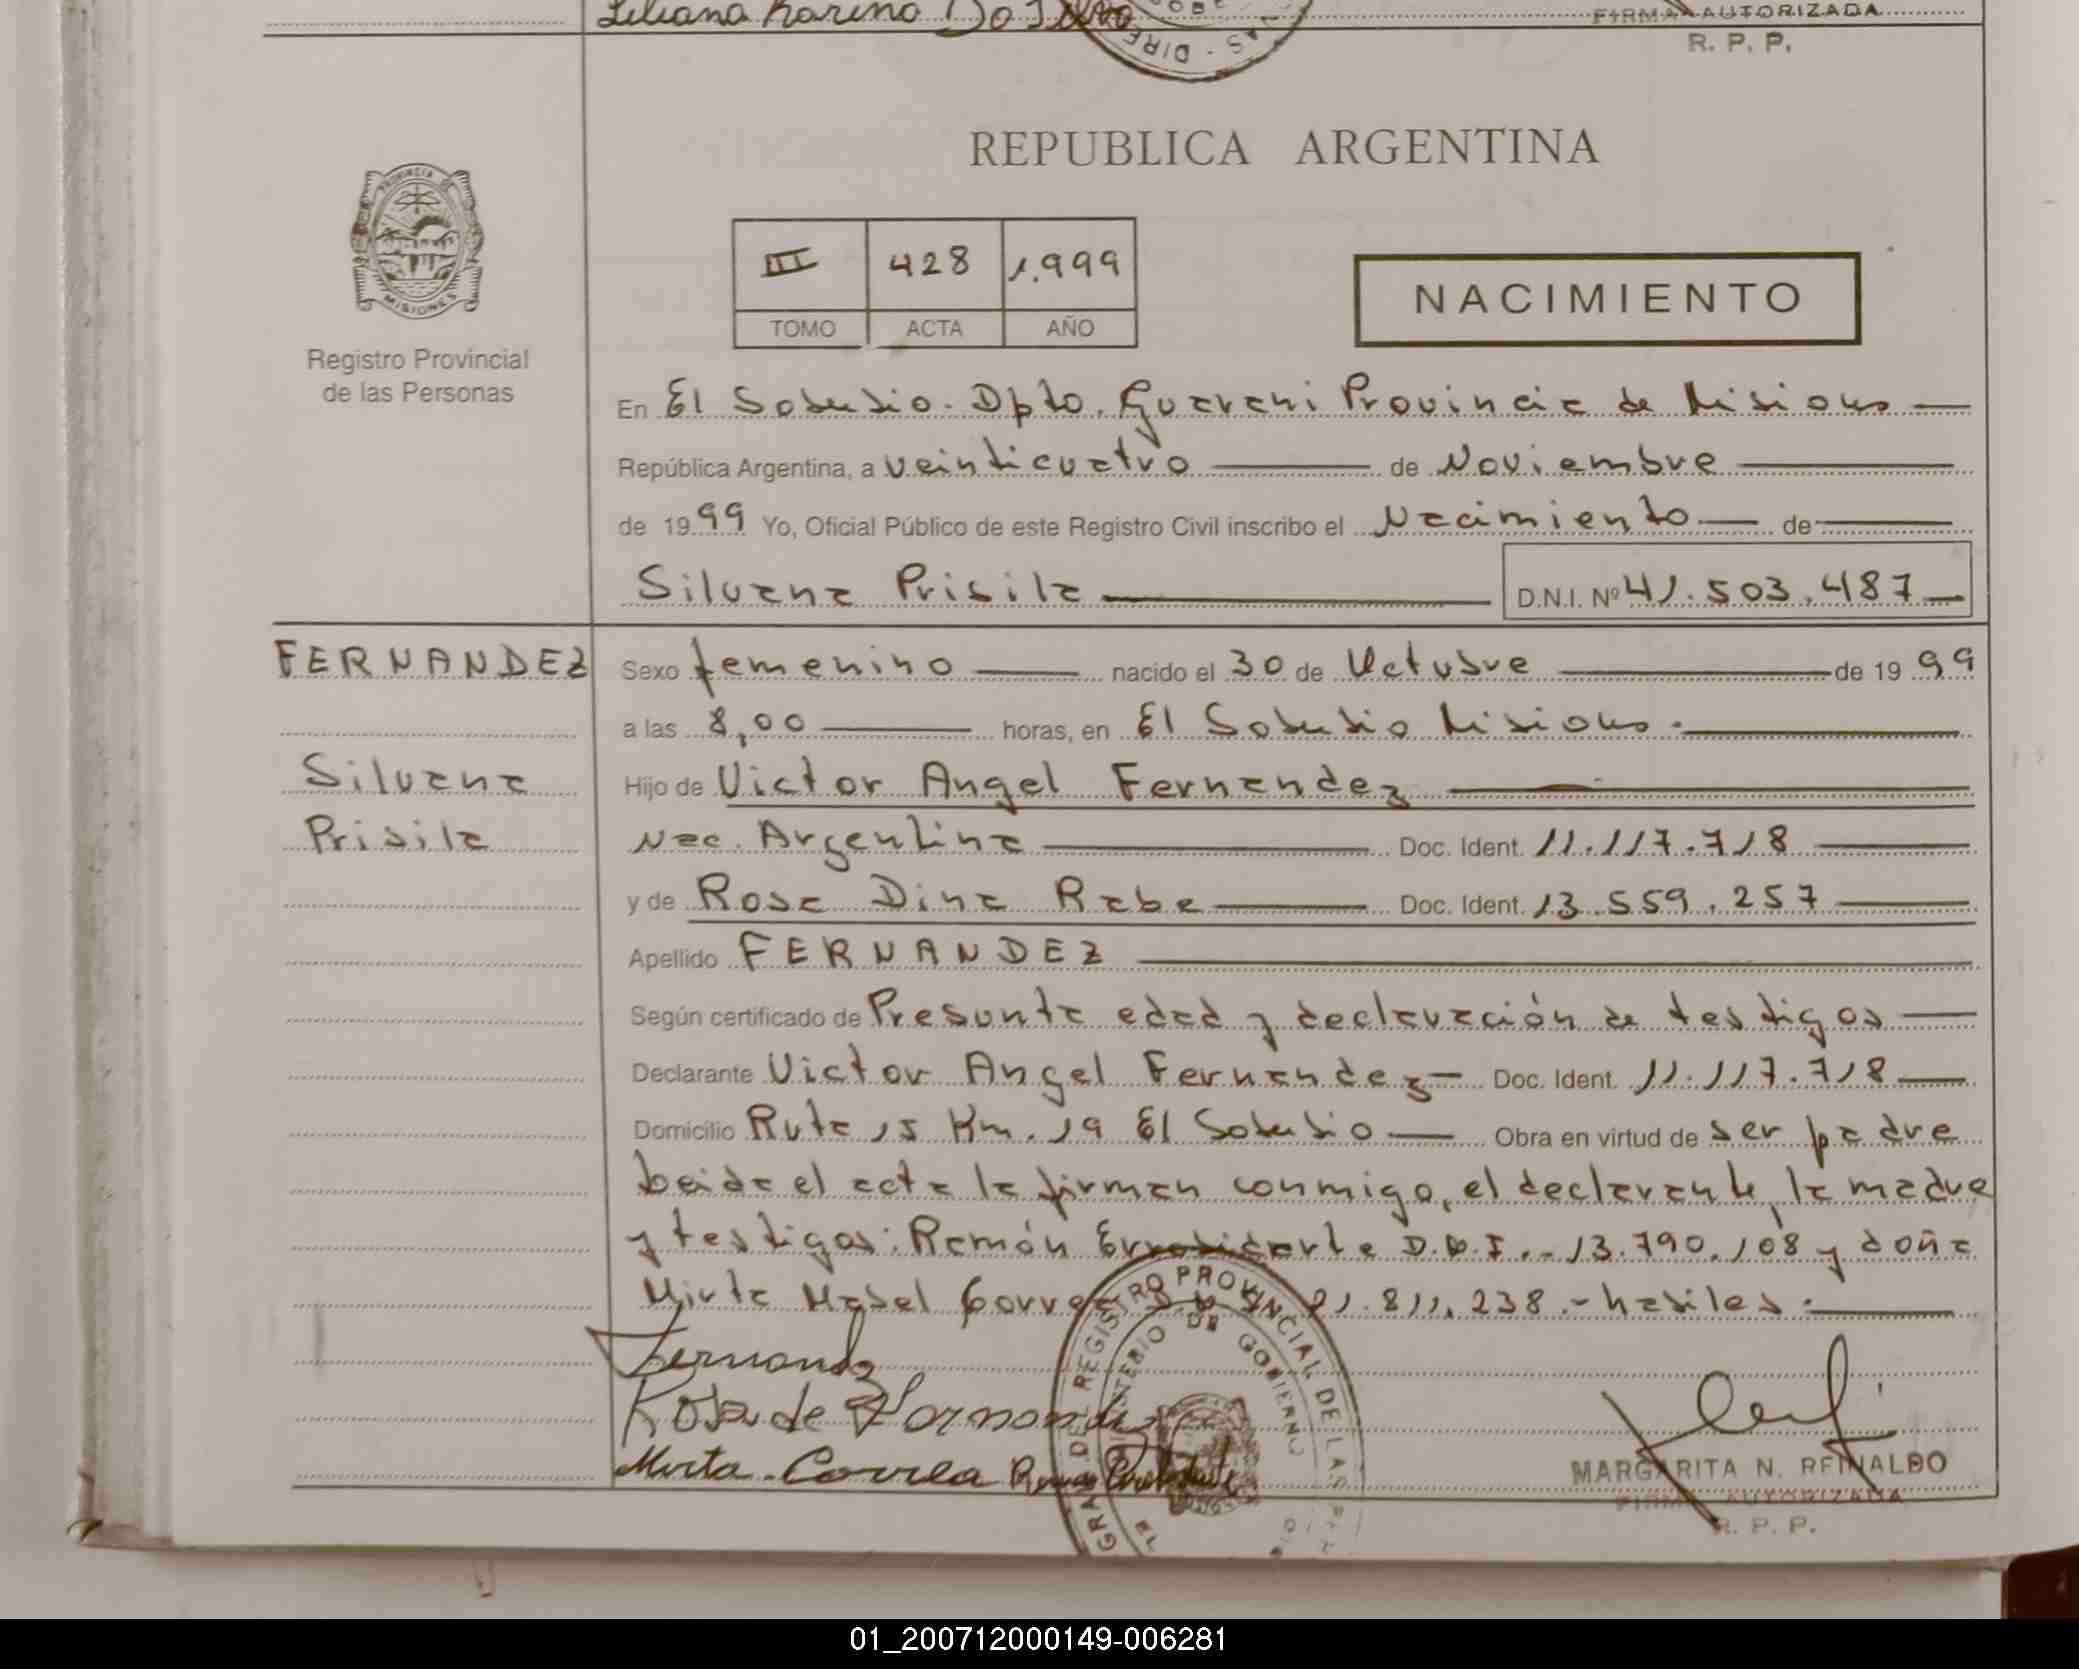 Liliana Karina Do Silva
FIRMA AUTORIZADA
R. P. P.
DIRE
PROVINCIA DE
MISIONES
Registro Provincial
de las Personas
REPUBLICA ARGENTINA
III 428 1.999
TOMO ACTA AÑO
NACIMIENTO
En El Soberbio. Dpto. Guarani Provincia de Misiones
República Argentina, a veinticuatro de Noviembre
de 1999 Yo, Oficial Público de este Registro Civil inscribo el Nacimiento de
Silvana Prisila D.N.I. Nº 41.503.487
FERNANDEZ
Silvana
Prisila
Sexo femenino nacido el 30 de Octubre de 1999
a las 8,00 horas, en El Soberbio Misiones.
Hijo de Victor Angel Fernandez
Nac. Argentina Doc. Ident. 11.117.718
y de Rosa Dina Rabe Doc. Ident. 13.559.257
Apellido FERNANDEZ
Según certificado de Presunta edad y declaración de testigos
Declarante Victor Angel Fernandez Doc. Ident. 11.117.718
Domicilio Ruta 15 Km. 19 El Soberbio Obra en virtud de ser padre
Leida el acta la firman conmigo, el declarante, la madre
y testigos: Ramón D.N.I.- 13.790.108 y doña
Mirta Mabel Correa 21.811.238.- habiles.
Fernandez
Rosa de Fernandez
Mirta Correa Ramon
REGISTRO PROVINCIAL DE LAS
MINISTERIO DE GOBIERNO
MARGARITA N. REINALDO
FIRMA AUTORIZADA
R. P. P.
01_200712000149-006281